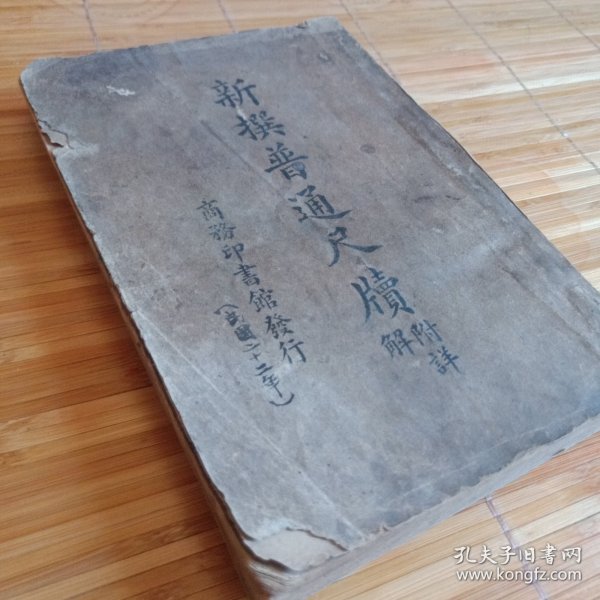 新撰普通尺牘
附詳
解
商務印書館發行
（民國二十二年）
孔夫子旧書网
www.kongfz.com